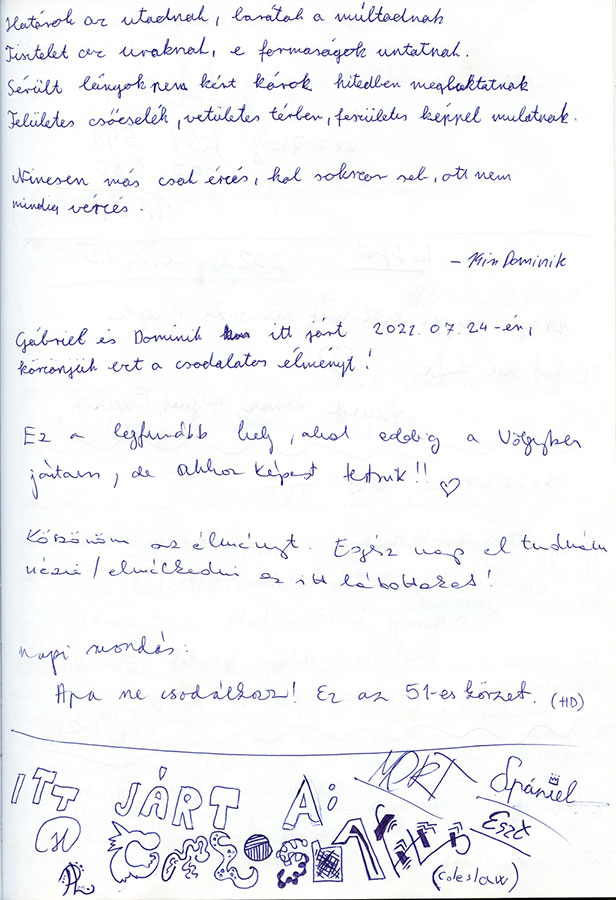 Határok az utadnak, barátok a múltadnak
Tisztelet az uraknak, e formaságok untatnak.
Sérült lányok nem kért károk hitedben megbuktatnak
Felületes csőcselék, vetületes térben, feszületes képpel mulatnak.
Nincsen más csak érzés, hol sokszor seb, ott nem
mindig vérzés.
- Kis Dominik
Gábriel és Dominik itt járt 2022.07.24-én,
köszönjük ezt a csodálatos élményt!
Ez a legfurább hely, ahol eddig a Völgyben
jártam, de ahhoz képest tetszik!! ♡
Köszönöm az élményt. Egész nap el tudnám
nézni / elmélkedni az itt látottakat!
Napi mondás:
Apa ne csodálkozz! Ez az 51-es körzet. (HD)
ITT JÁRT A:
MORT
Spániel
Eszt
(coleslaw)